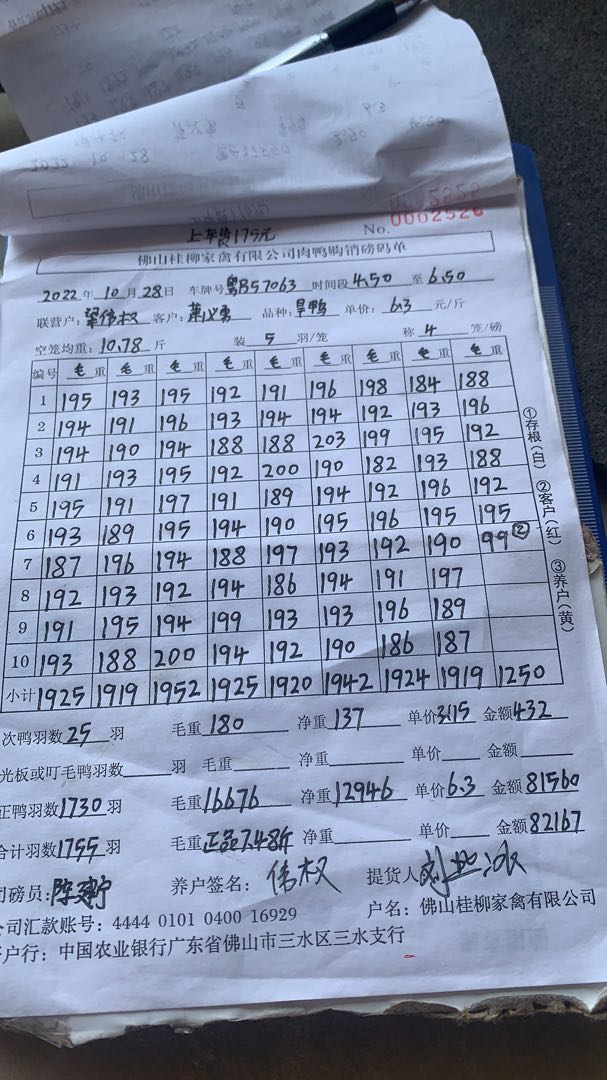 上车费175元
No.
0002526
佛山桂柳家禽有限公司肉鸭购销磅码单
2022年10月28日 车牌号粤B57063 时间段4.50至6.50
联营户:梁伟权 客户:萧汉勇 品种:旱鸭 单价:6.3元/斤
空笼均重:10.78斤 装5羽/笼 称4笼/磅
编号 毛重 毛重 毛重 毛重 毛重 毛重 毛重 毛重 毛重
1 195 193 195 192 191 196 198 184 188
2 194 191 196 193 194 194 192 193 196
3 194 190 194 188 188 203 199 195 192
4 191 193 195 192 200 190 182 193 188
5 195 191 197 191 189 194 192 196 192
6 193 189 195 194 190 195 196 195 195
7 187 196 194 188 197 193 192 190 99②
8 192 193 192 194 186 194 191 197
9 191 195 194 199 193 193 196 189
10 193 188 200 194 192 190 186 187
小计 1925 1919 1952 1925 1920 1942 1924 1919 1250
①存根(白) ②客户(红) ③养户(黄)
次鸭羽数25羽 毛重180 净重137 单价3.15 金额432
光板或叮毛鸭羽数 羽 毛重 净重 单价 金额
正鸭羽数1730羽 毛重16676 净重12946 单价6.3 金额81560
合计羽数1755羽 毛重正品7.48斤 净重 单价 金额82167
司磅员: 养户签名:伟权 提货人
公司汇款账号:4444 0101 0400 16929 户名:佛山桂柳家禽有限公司
开户行:中国农业银行广东省佛山市三水区三水支行